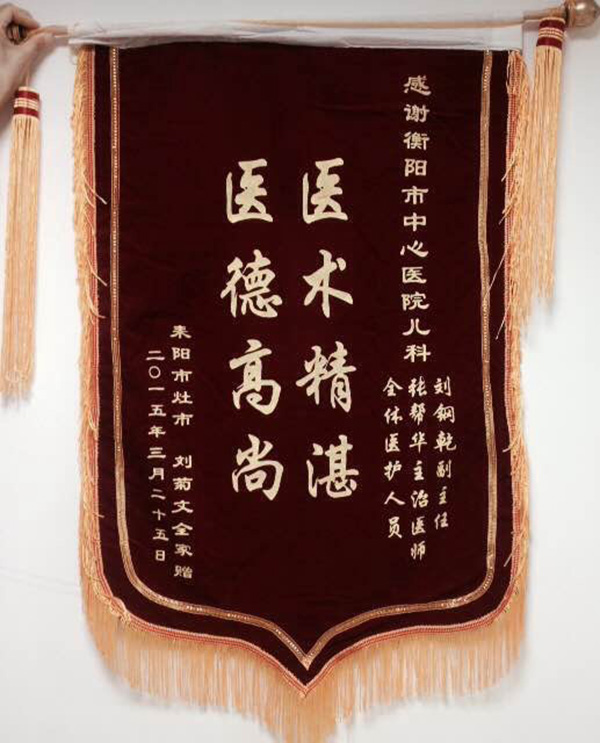 感谢衡阳市中心医院儿科
刘钢乾副主任
张帮华主治医师
全体医护人员
医术精湛
医德高尚
耒阳市灶市 刘菊文全家赠
二〇一五年三月二十五日